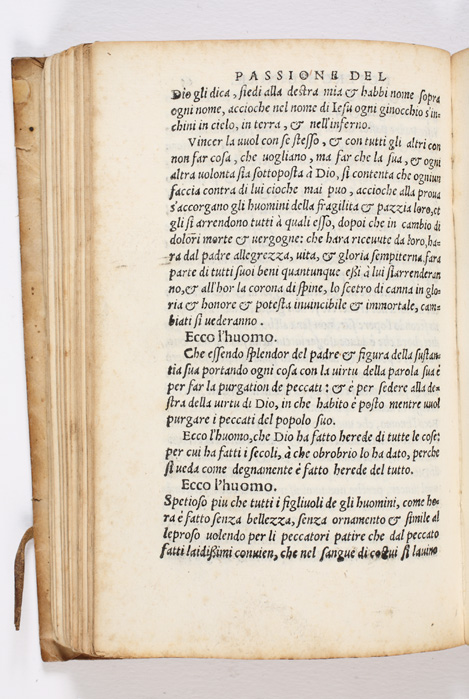 PASSIONE DEL
Dio gli dica, siedi alla destra mia & habbi nome sopra
ogni nome, accioche nel nome di Iesu ogni ginocchio s'in-
chini in cielo, in terra, & nell'inferno.
Vincer la uuol con se stesso, & con tutti gli altri con
non far cosa, che uogliano, ma far che la sua, & ogni
altra uolonta sia sottoposta à Dio, si contenta che ogniun
faccia contra di lui cioche mai puo, accioche alla proua
s'accorgano gli huomini della fragilita & pazzia loro, et
gli si arrendono tutti à quali esso, dopoi che in cambio di
dolori morte & uergogne: che hara riceuute da loro, ha-
ra dal padre allegrezza, uita, & gloria sempiterna, fara
parte di tutti suoi beni quantunque eßi à lui s'arrenderan
no, & all'hor la corona di spine, lo scetro di canna in glo-
ria & honore & potesta inuincibile & immortale, cam-
biati si uederanno.
Ecco l'huomo.
Che essendo splendor del padre & figura della sustan-
tia sua portando ogni cosa con la uirtu della parola sua è
per far la purgation de peccati: & è per sedere alla de-
stra della uirtu di Dio, in che habito è posto mentre uuol
purgare i peccati del popolo suo.
Ecco l'huomo, che Dio ha fatto herede di tutte le cose:
per cui ha fatti i secoli, à che obrobrio lo ha dato, perche
si ueda come degnamente è fatto herede del tutto.
Ecco l'huomo.
Spetioso piu che tutti i figliuoli de gli huomini, come ho-
ra è fatto senza bellezza, senza ornamento & simile al
leproso uolendo per li peccatori patire che dal peccato
fatti laidißimi conuien, che nel sangue di costui si lauino